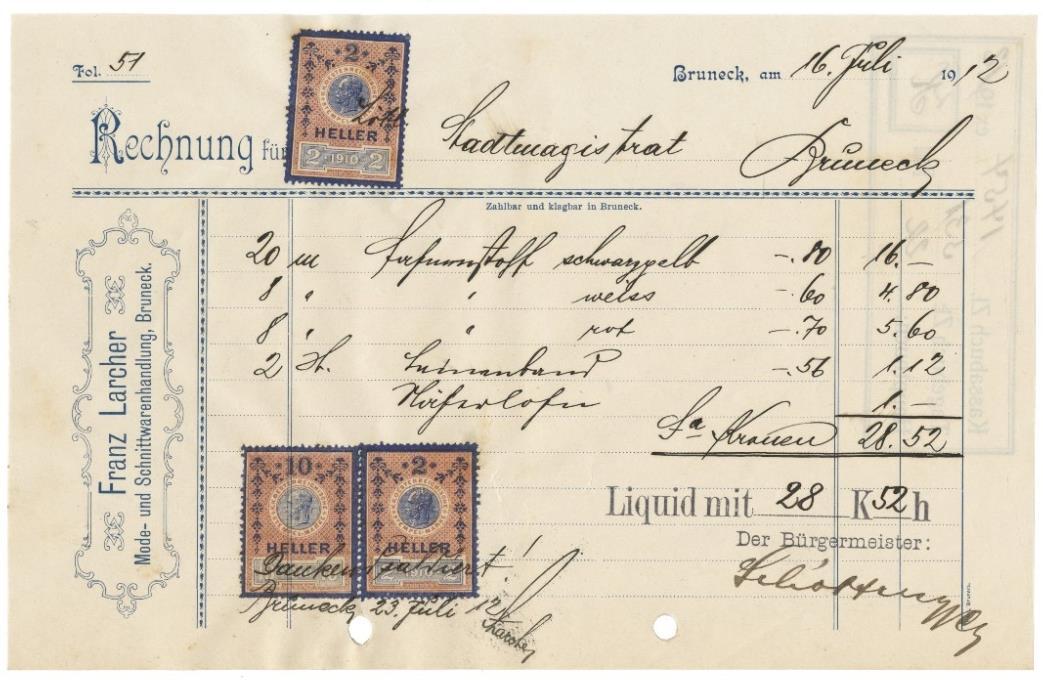 Fol. 51
Bruneck, am 16. Juli 1912
Rechnung für Stadtmagistrat Bruneck
2
HELLER
2 1910 2
Zahlbar und klagbar in Bruneck.
Franz Larcher
Mode- und Schnittwarenhandlung, Bruneck.
20 m Fahnenstoff schwarzgelb -.80 16.-
8 " " weiss -.60 4.80
8 " " rot -.70 5.60
2 St. Leinenband -.56 1.12
Näherlohn 1.-
Sa Kronen 28.52
Liquid mit 28 K 52 h
Der Bürgermeister:
10
HELLER
2
HELLER
2 1910 2
Dankend saldiert!
Bruneck 23. Juli 12